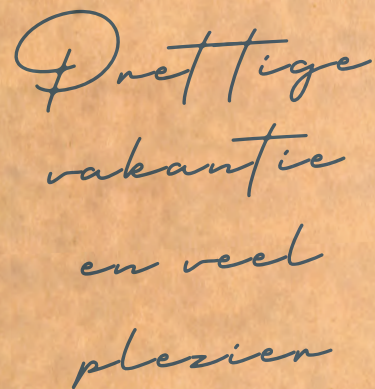 Prettige
vakantie
en veel
plezier